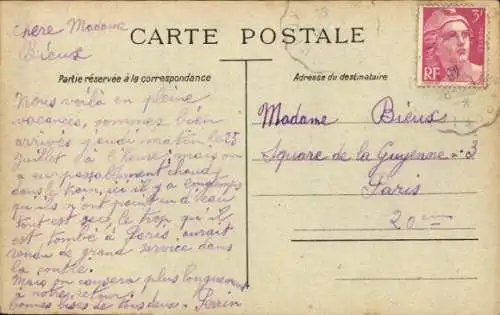 Chère Madame
Biéus
CARTE POSTALE
3F
RF
Partie réservée à la correspondance
Adresse du destinataire
Nous voilà en pleine
vacances, sommes bien
arrivés jeudi matin le 25
juillet à l'heure, mais on
a eu passablement chaud
dans le train, ici il y a longtemps
qu'ils n'ont point eu d'eau
tout est sec, le trop qu'il
est tombé à Paris aurait
rendu de grand service dans
la contrée.
Mais on causera plus longuement
à notre retour.
bonnes bises de tous deux. Perrin
Madame Biéus
Square de la Guyenne n° 3
Paris
20ème